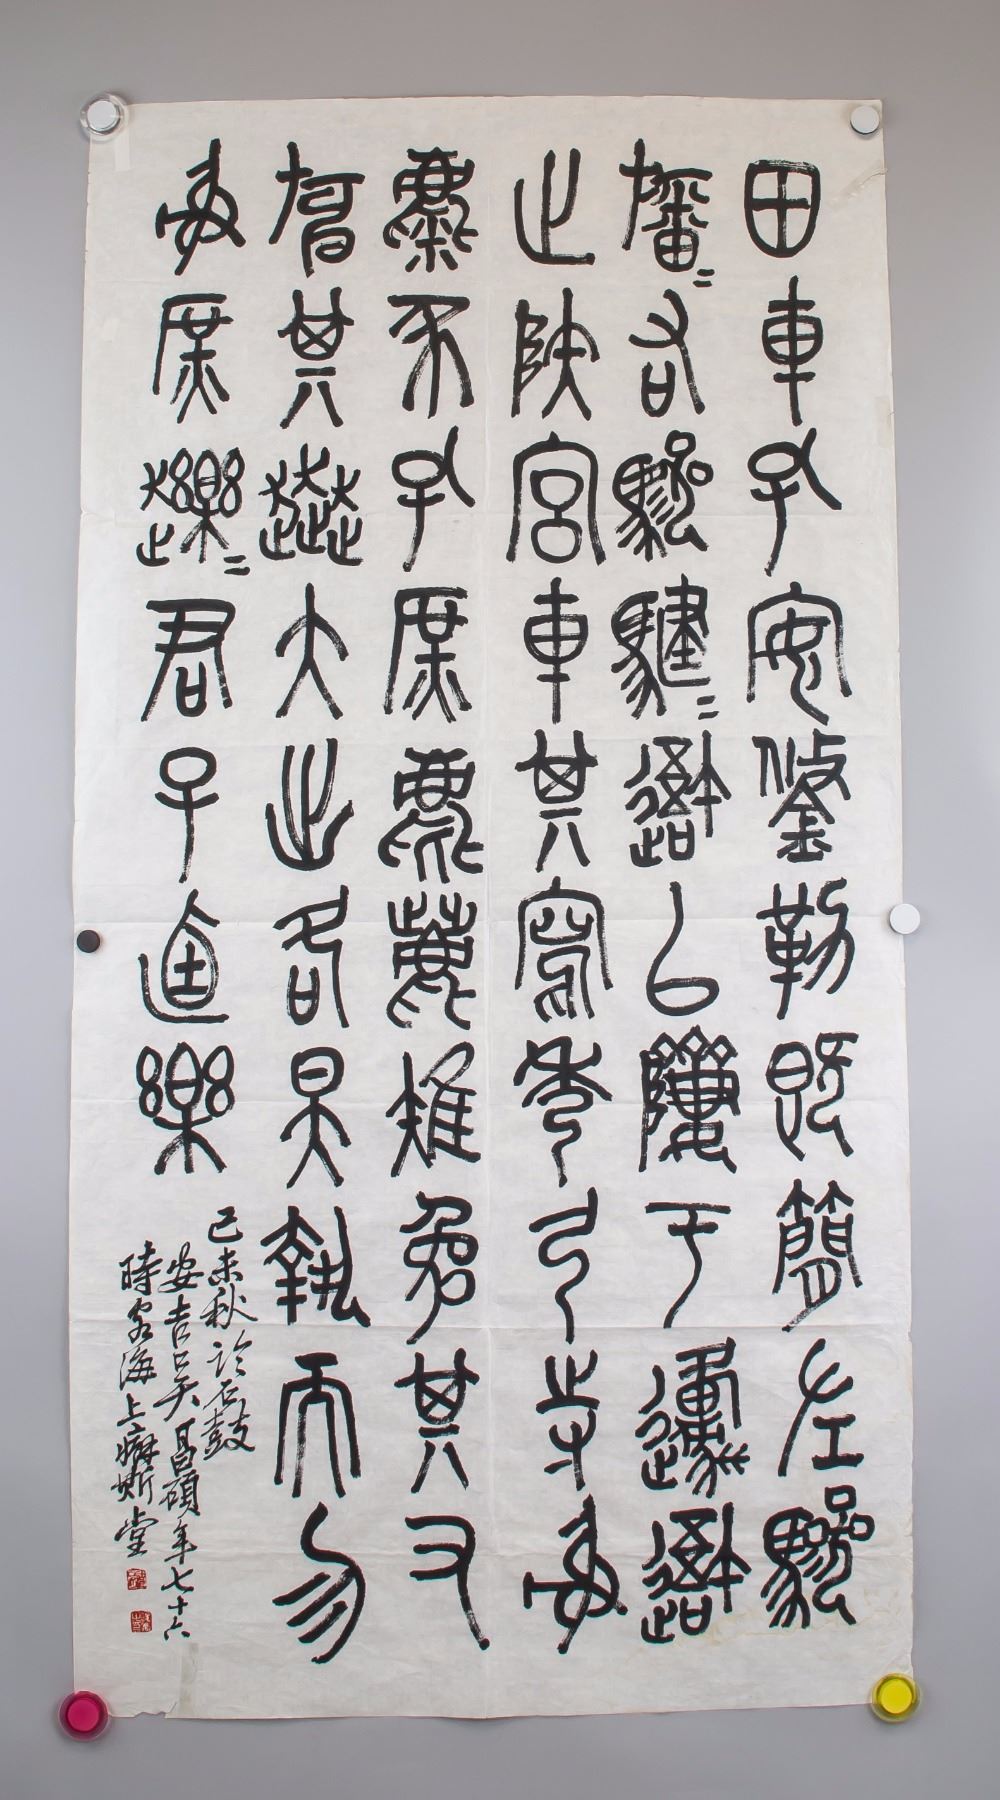 田車孔安鋚勒既簡左驂
旛=右驂騝=䢩以隮于邍䢩
止陜宮車其寫秀弓寺射
麋豕孔庶麀鹿雉兔其又
旃其奔大出各昊執而勿
射庶䟏=君子逌樂
己未秋臨石鼓
安吉吳昌碩年七十六
時客海上癖斯堂